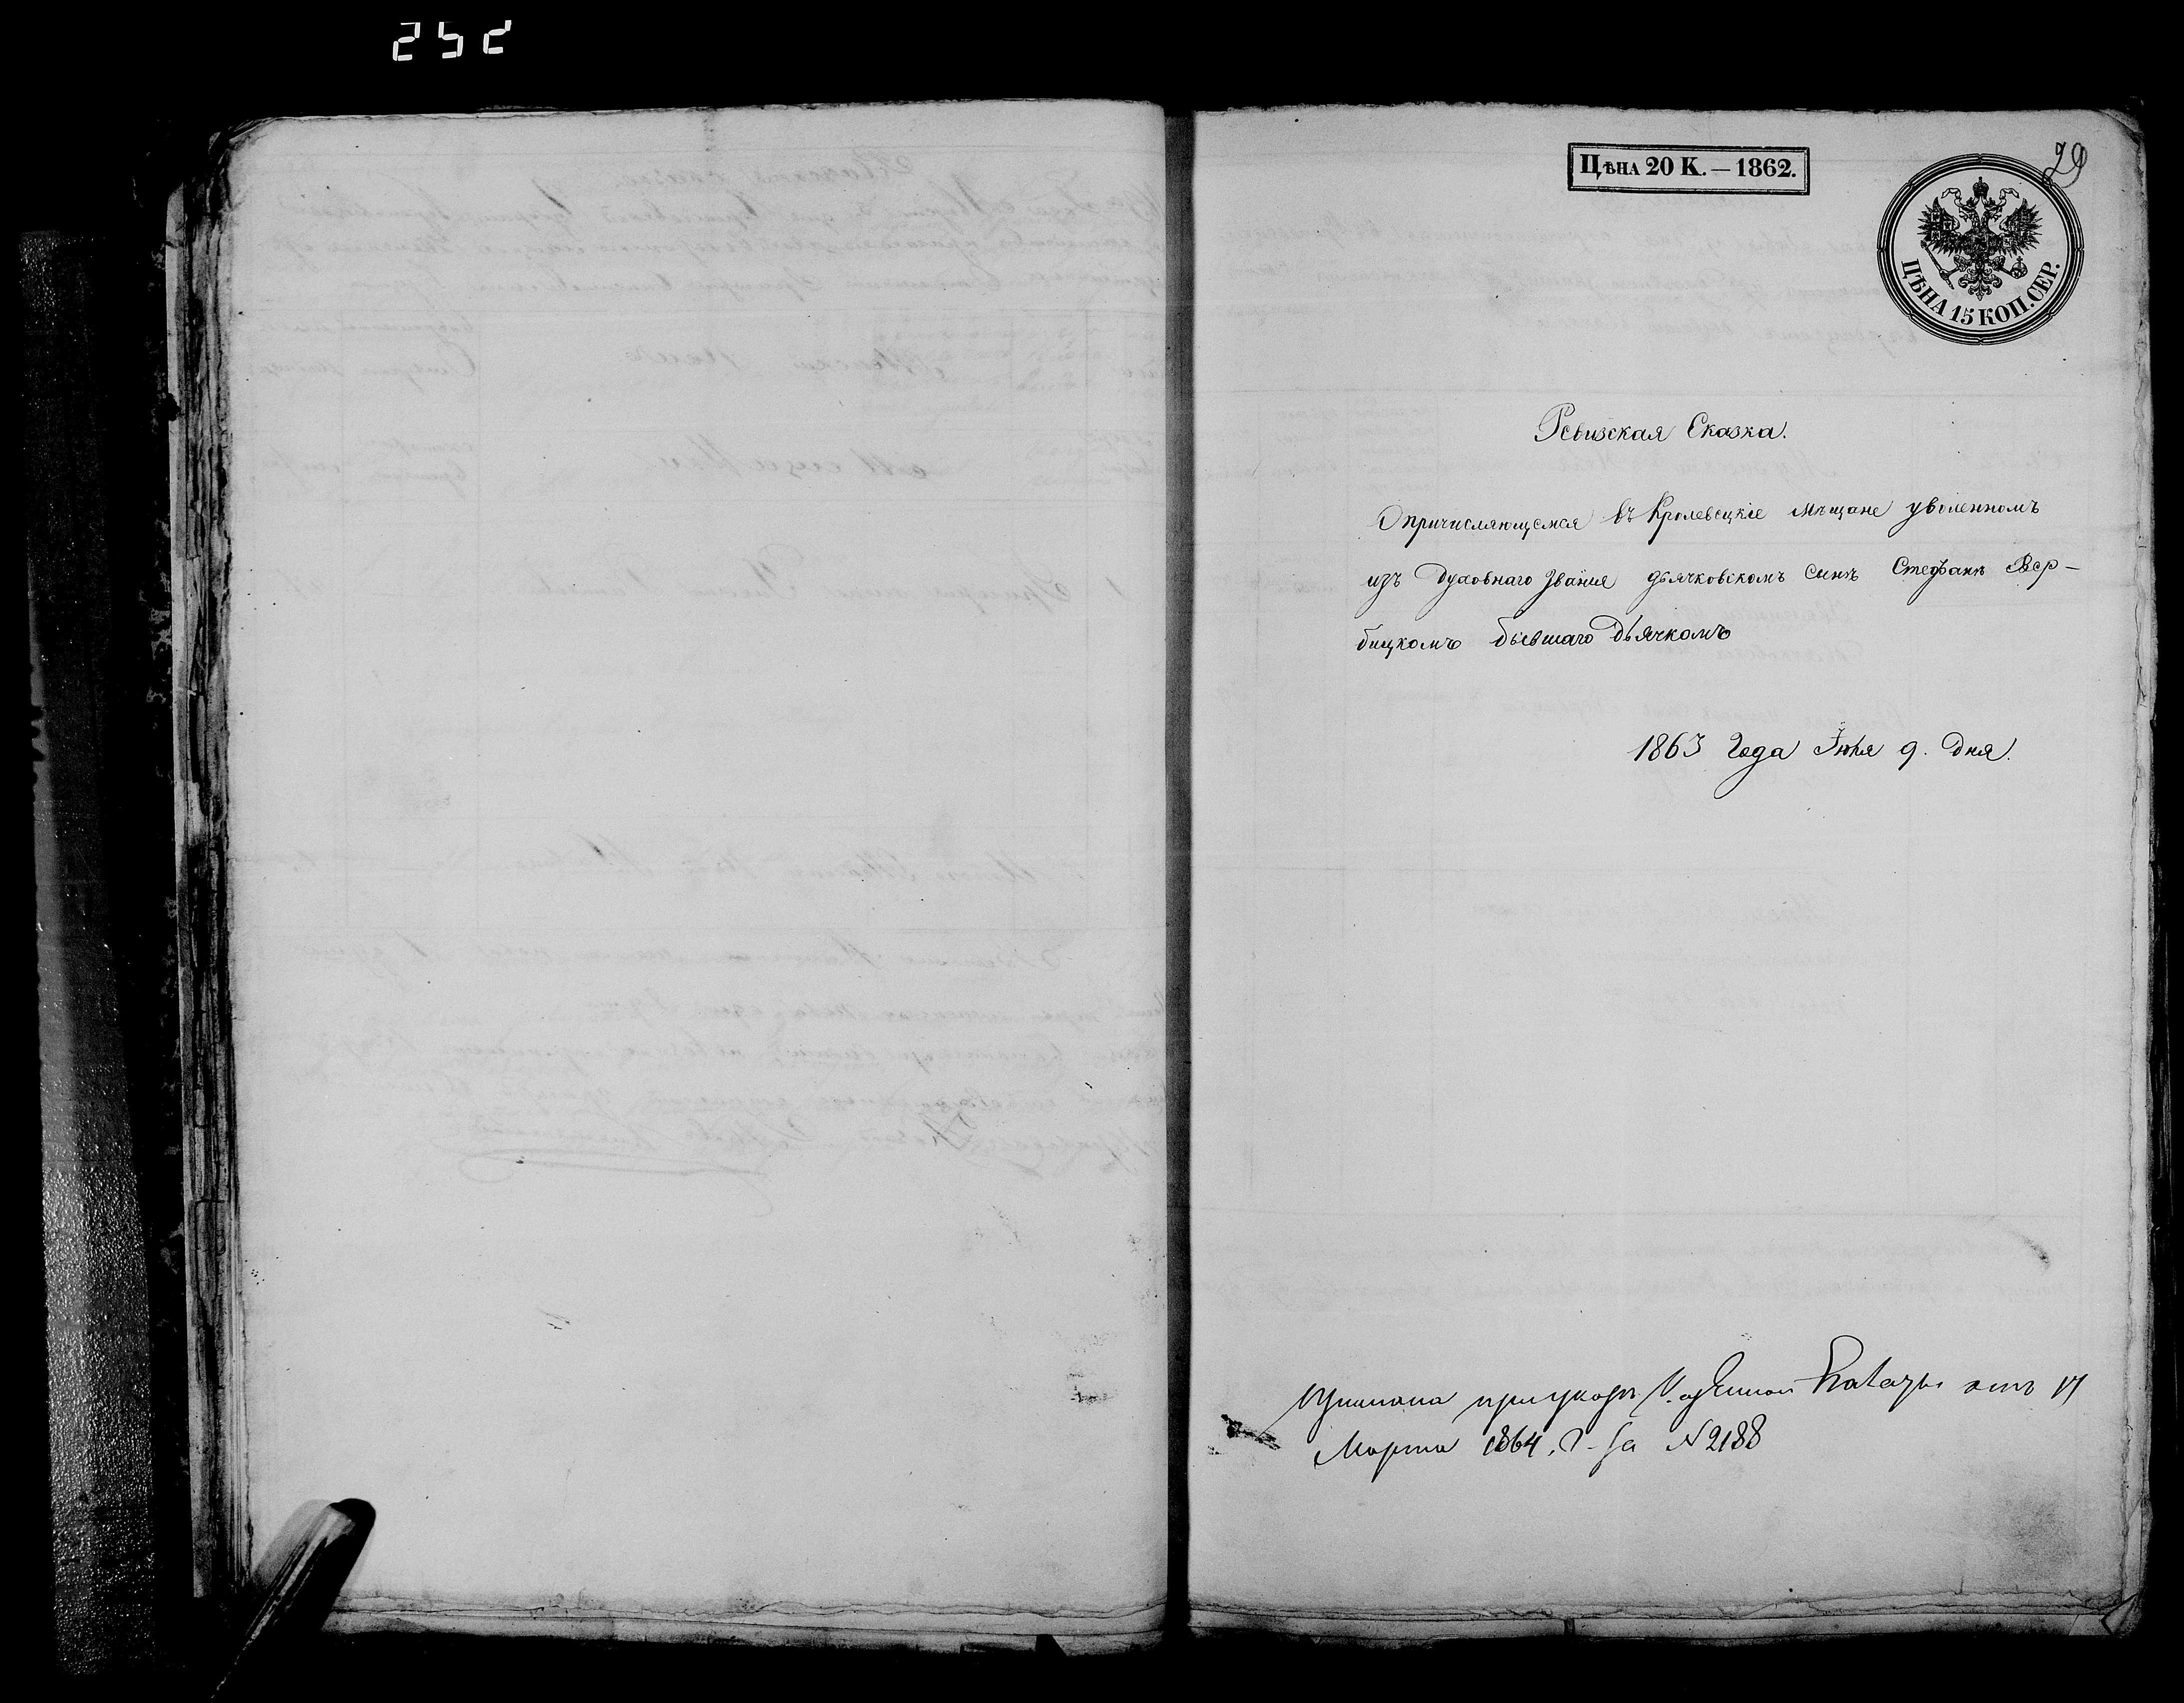 252
29
Цѣна 20 К. — 1862.
ЦѢНА 15 КОП. СЕР.
Ревизская Сказка.
О причисляющемся въ Кролевецкіе мѣщане уволенномъ
изъ духовнаго званія дьячковскомъ сынѣ Стефанѣ Вер-
бицкомъ бывшаго дьячкомъ
1863 года Іюля 9. дня.
при указѣ Казенной Палаты отъ 17
Марта 1864. г. за № 2188